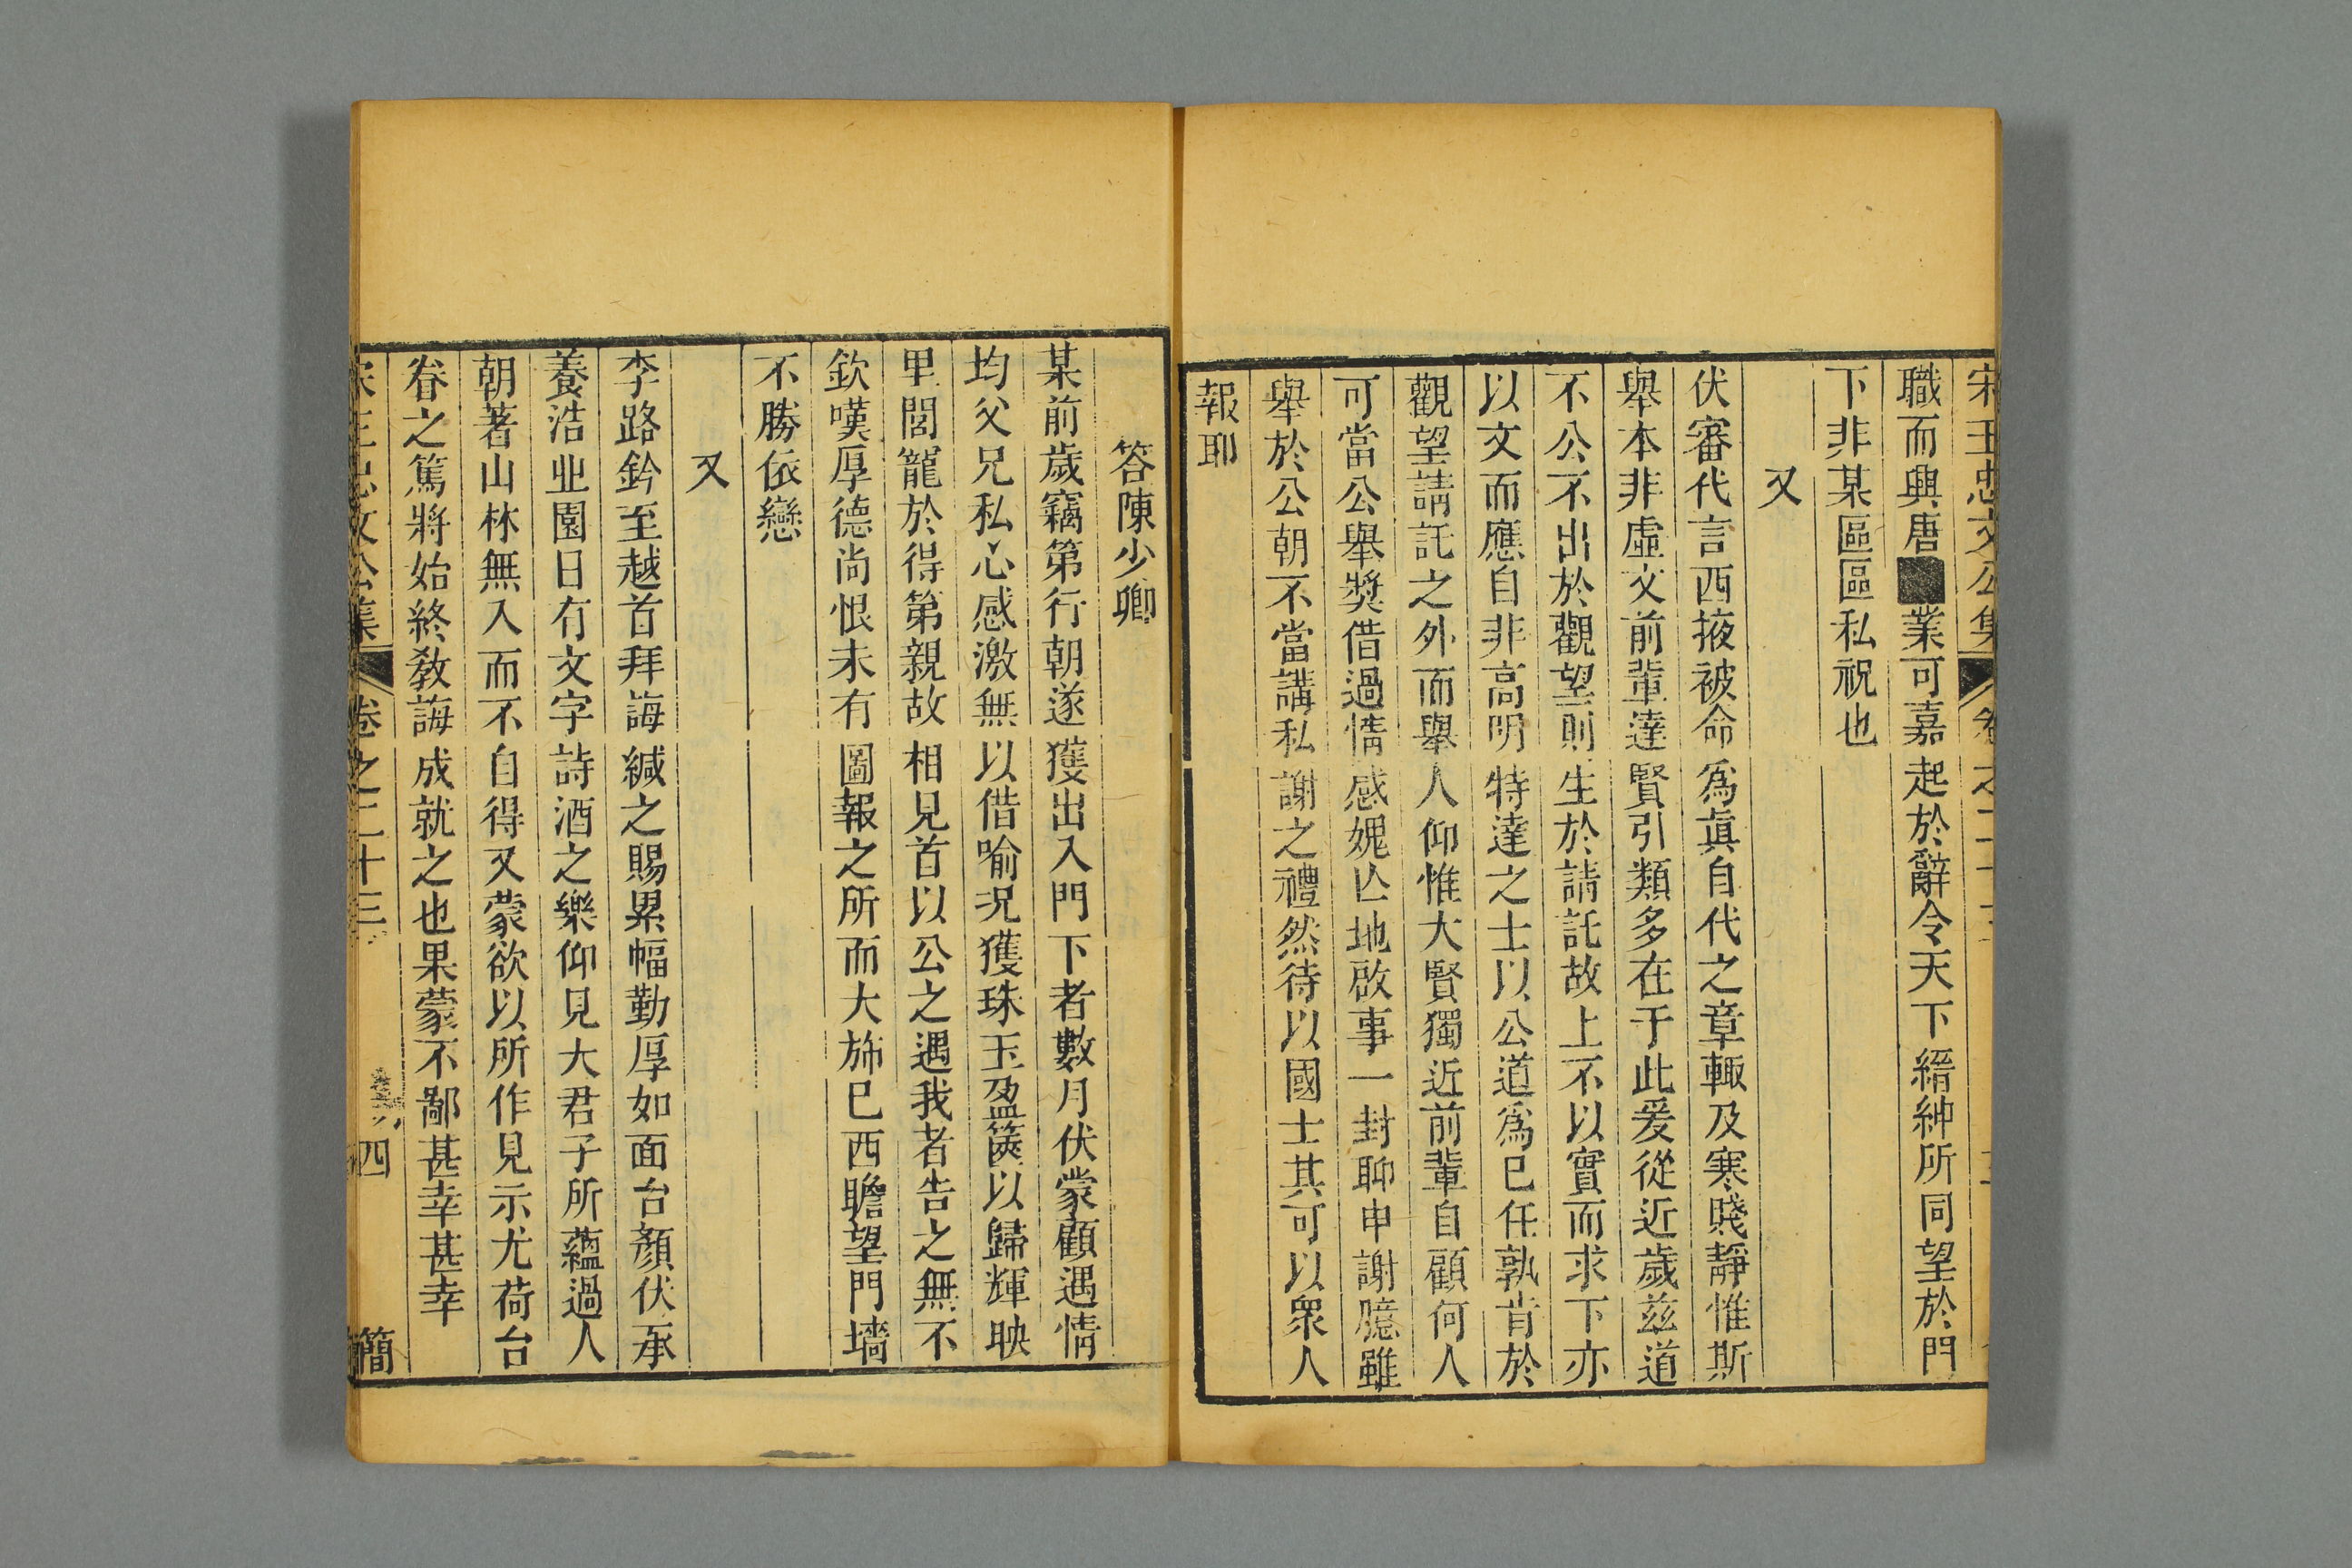 宋王忠文公集 卷之二十三
職而興唐■業可嘉起於辭令天下縉紳所同望於門
下非某區區私祝也
又
伏審代言西掖被命爲眞自代之章輙及寒賤靜惟斯
舉本非虛文前輩達賢引類多在于此爰從近歲兹道
不公不出於觀望則生於請託故上不以實而求下亦
以文而應自非高明特達之士以公道爲已任孰肯於
觀望請託之外而舉人仰惟大賢獨近前輩自顧何人
可當公舉獎借過情感媿亾地啟事一封聊申謝臆雖
舉於公朝不當講私謝之禮然待以國士其可以衆人
報耶
答陳少卿
某前歲竊第行朝遂獲出入門下者數月伏蒙顧遇情
均父兄私心感激無以借喻况獲珠玉盈篋以歸輝映
里閭寵於得第親故相見首以公之遇我者告之無不
欽嘆厚德尚恨未有圖報之所而大斾已西瞻望門墻
不勝依戀
又
李路鈐至越首拜誨緘之賜累幅勤厚如面台顏伏承
養浩丠園日有文字詩酒之樂仰見大君子所蘊過人
朝著山林無入而不自得又蒙欲以所作見示尤荷台
眷之篤將始終教誨成就之也果蒙不鄙甚幸甚幸
宋王忠文公集 卷之二十三 四 簡